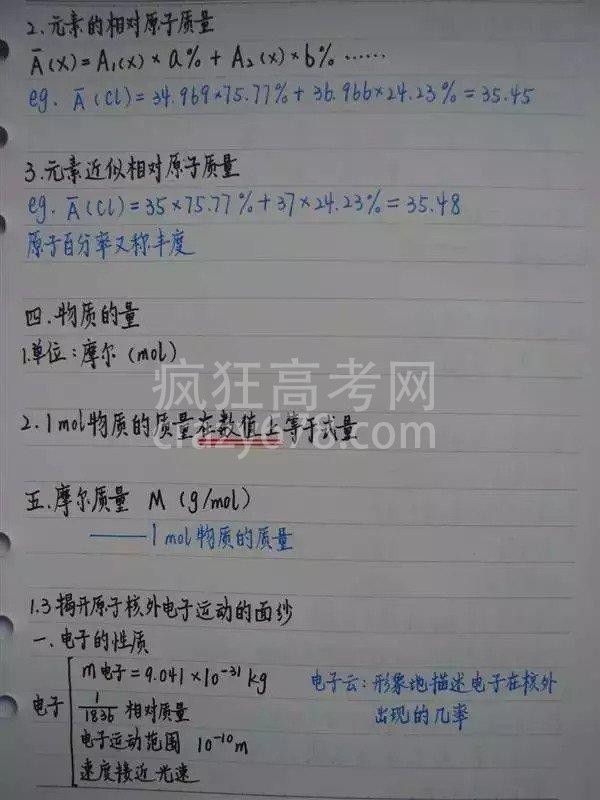 2.元素的相对原子质量
Ā(X)=A₁(X)×a%+A₂(X)×b%……
eg. Ā(Cl)=34.969×75.77%+36.966×24.23%=35.45
3.元素近似相对原子质量
eg. Ā(Cl)=35×75.77%+37×24.23%=35.48
原子百分率又称丰度
四.物质的量
1.单位:摩尔(mol)
疯狂高考网
2.1mol物质的质量在数值上等于式量
crazy678.com
五.摩尔质量 M(g/mol)
——1mol物质的质量
1.3揭开原子核外电子运动的面纱
一.电子的性质
m电子=9.041×10⁻³¹kg
电子云:形象地描述电子在核外
电子
1/1836 相对质量
出现的几率
电子运动范围 10⁻¹⁰m
速度接近光速